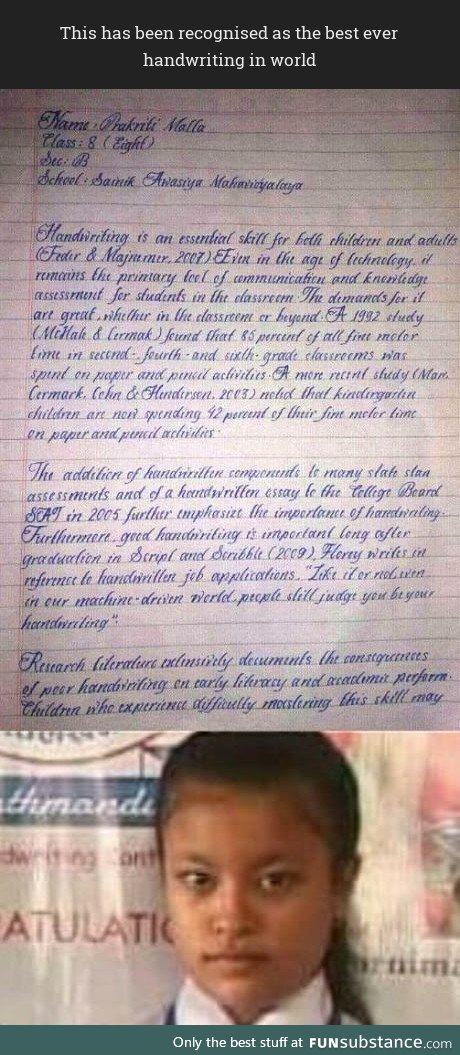 This has been recognised as the best ever
handwriting in world
Name : Prakriti Malla
Class : 8 (Eight)
Sec : B
School : Sainik Awasiya Mahavidyalaya
Handwriting is an essential skill for both children and adults
(Feder & Majnemer, 2007) Even in the age of technology, it
remains the primary tool of communication and knowledge
assessment for students in the classroom. The demands for it
are great, whether in the classroom or beyond. A 1992 study
(McHale & Cermak) found that 85 percent of all fine motor
time in second-, fourth- and sixth- grade classrooms was
spent on paper and pencil activities. A more recent study (Marr,
Cermark, Cohn & Henderson, 2003) noted that kindergarten
children are now spending 42 percent of their fine motor time
on paper and pencil activities.
The addition of handwritten components to many state stan
assessments and of a handwritten essay to the College Board
SAT in 2005 further emphasize the importance of handwriting.
Furthermore, good handwriting is important long after
graduation in Script and Scribble (2009), Florey writes in
reference to handwritten job applications, "Like it or not, even
in our machine-driven world, people still judge you by your
handwriting".
Research literature extensively documents the consequences
of poor handwriting on early literacy and academic perform.
Children who experience difficulty mastering this skill may
thmandu
dwriting Cont
ATULATIO
Only the best stuff at FUNsubstance.com